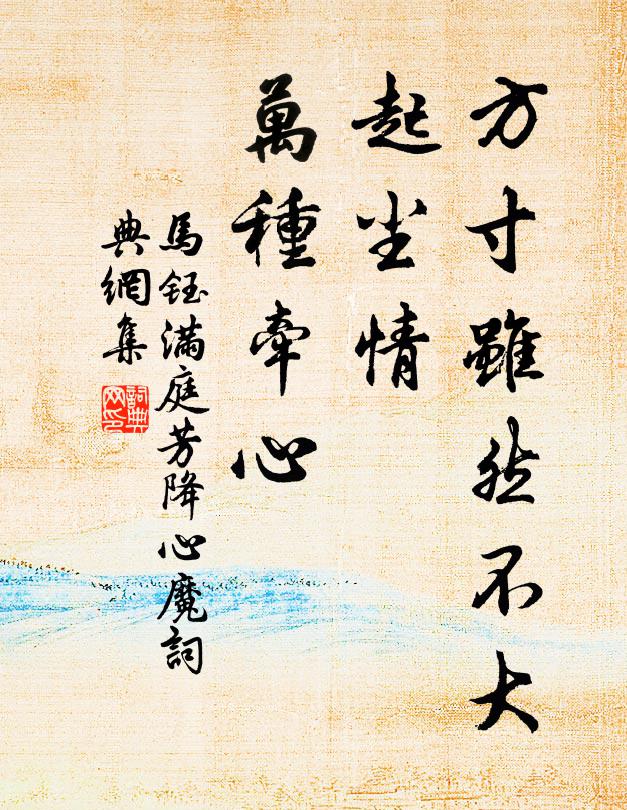 方寸雖然不大
起尘情
萬種牽心
馬鈺满庭芳降心魔詞
典網集
詞典
网印